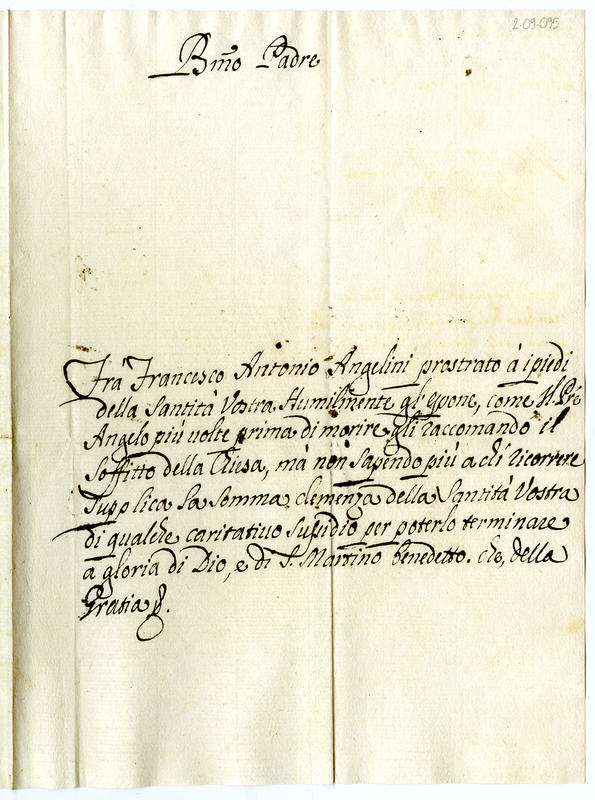 2-09-095
Bmo Padre
Frà Francesco Antonio Angelini prostrato à i piedi
della Santità Vostra Humilmente gl'espone, come Il Pre
Angelo più uolte prima di morire gli raccomandò il
soffitto della Chiesa, mà non sapendo più a chi ricorrere
supplica la somma clemenza della Santità Vostra
di qualche caritatiuo susidio per poterlo terminare
a gloria di Dio, e di S. Martino benedetto. che, della
Gratia